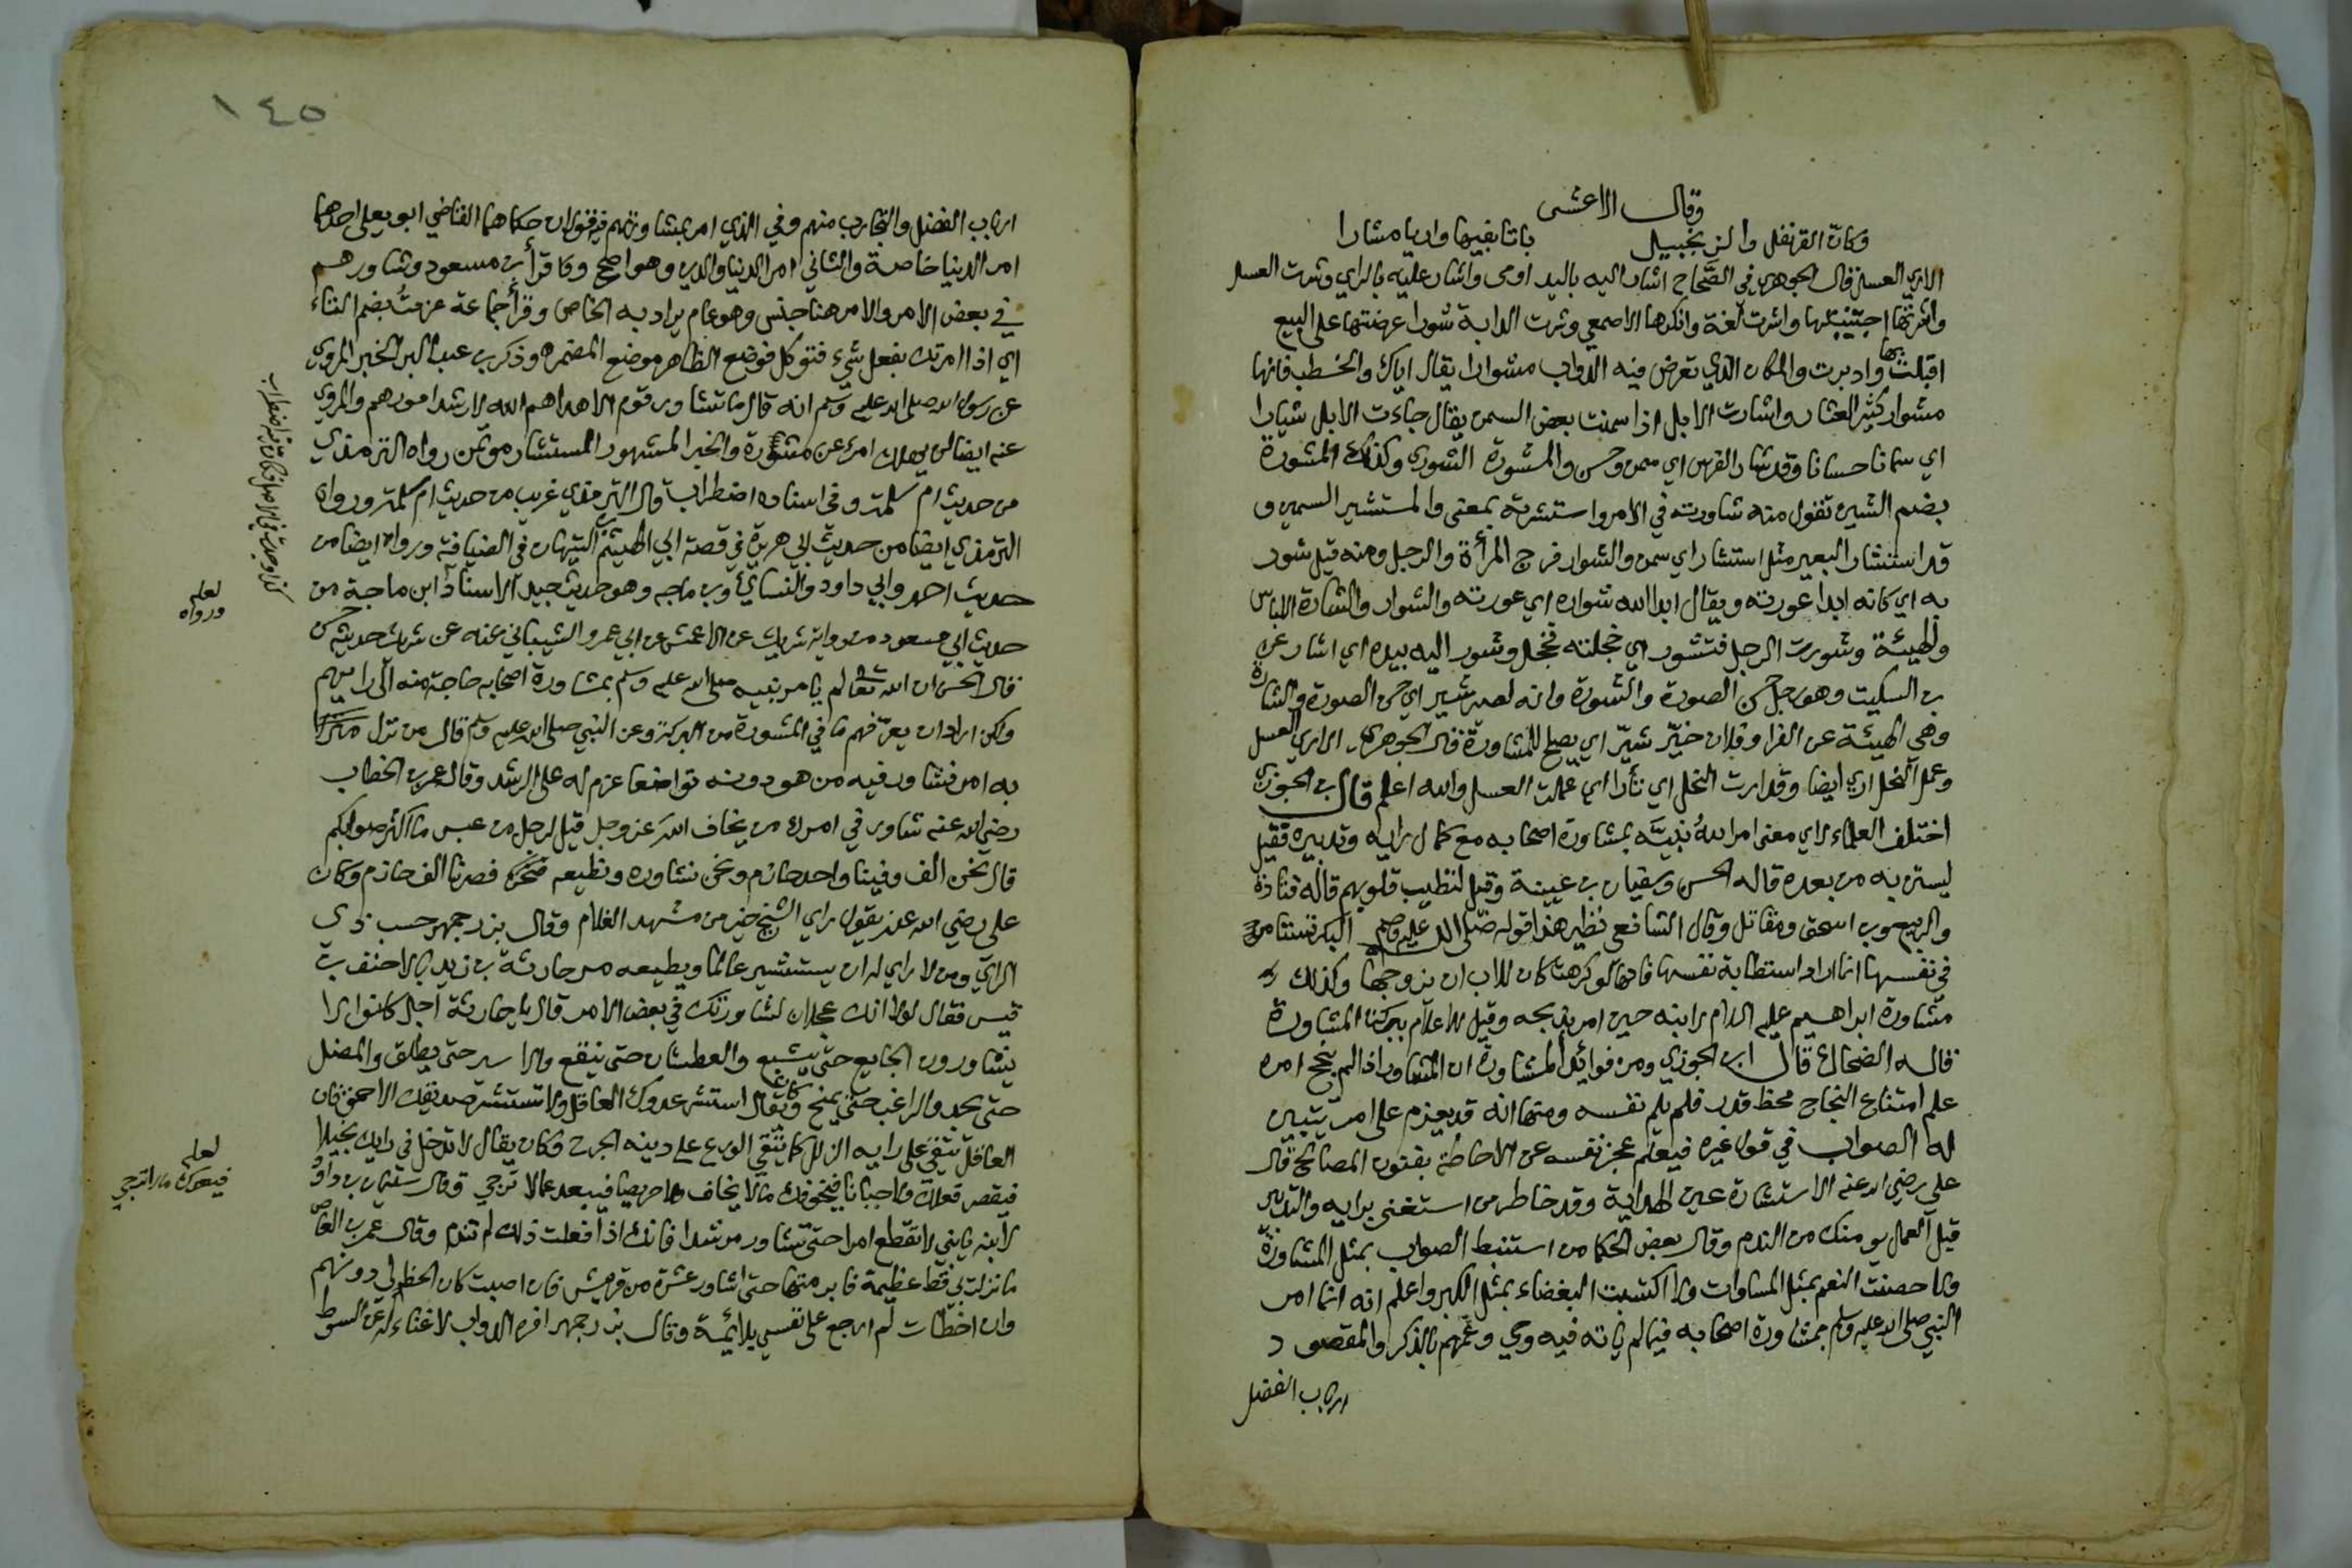 وقال الاعشى
وكان القرنفل والزنجبيل باتا بفيها واريا مشارا
الاري العسل قال الجوهري في الصحاح اشار اليه باليد اومى واشار عليه بالراي وشرت العسل
واشرتها اجتنيتها واشرت لغة وانكرها الاصمعي وشرت الدابة شورا عرضتها على البيع
اقبلت بها وادبرت والمكان الذي تعرض فيه الدواب مشوارا يقال اياك والخطب فانها
مشوار كثير العثار واشارت الابل اذا سمنت بعض السمن يقال جاءت الابل شيارا
اي سمانا حسانا وقد شار الفرس اي سمن وحسن والمشورة الشورى وكذلك المشورة
بضم الشين تقول منه شاورته في الامر واستشرته بمعنى والمستشير السمين و
قد استشار البعير مثل اشتار اي سمن والشوار فرج المرأة والرجل ومنه قيل شور
به اي كانه ابدا عورته ويقال ابدا الله شواره اي عورته والشوار والشارة اللباس
والهيئة وشورت الرجل فتشور اي خجلته فخجل وشور اليه بيده اي اشار عن
بن السكيت وهو رجل حسن الصورة والشورة وانه لصير شير اي حسن الصورة والشارة
وهي الهيئة عن الفرا وفلان خير شير اي يصلح للمشاورة قال الجوهري الاري العسل
وعمل النحل اري ايضا وقد ارت النحل اي تأرا اي عملت العسل والله اعلم قال بن الجوزي
اختلف العلماء لاي معنى امر الله نبيه بمشاورة اصحابه مع كمال رايه وتدبيره فقيل
ليستن به من بعده قاله الحسن وسفيان بن عيينة وقيل لتطيب قلوبهم قاله قتادة
والربيع وبن اسحق ومقاتل وقال الشافعي نظير هذا قوله صلى الله عليه وسلم البكر تستامر
في نفسها انما اراد استطابة نفسها فانها لو كرهت كان للاب ان يزوجها وكذلك
مشاورة ابراهيم عليه السلام لابنه حين امر بذبحه وقيل للاعلام ببركة المشاورة
قاله الضحاك قال ابن الجوزي ومن فوائد المشاورة ان المشاور اذا لم ينجح امره
علم امتناع النجاح محض قدر فلم يلم نفسه ومنها انه قد يعزم على امر يتبين
له الصواب في قول غيره فيعلم عجز نفسه عن الاحاطة بفنون المصالح قال
علي رضي الله عنه الاستشارة عين الهداية وقد خاطر من استغنى برايه والتدبير
قبل العمل يومنك من الندم وقال بعض الحكما من استنبط الصواب بمثل المشاورة
ولا حصنت النعم بمثل المساوات ولا اكتسبت البغضاء بمثل الكبر واعلم انه انما امر
النبي صلى الله عليه وسلم بمشاورة اصحابه فيما لم ياته فيه وحي وعمهم بالذكر والمقصود
ارباب الفضل
١٤٥
ارباب الفضل والتجارب منهم وفي الذي امر بمشاورتهم فيه قولان حكاهما القاضي ابو يعلى احدهما
امر الدنيا خاصة والثاني امر الدنيا والدين وهو اصح وقا قرأ بن مسعود وشاورهم
في بعض الامر والامر هنا جنس وهو عام يراد به الخاص وقرأ جماعة عزمت بضم التاء
اي اذا امرتك بفعل شيء فتوكل فوضع الظاهر موضع المضمر وذكر بن عبد البر الخبر المروي
عن رسول الله صلى الله عليه وسلم انه قال ما تشاور قوم الا هداهم الله لارشد امورهم والمروي
عنه ايضا لن يهلك امرء عن مشورة والخبر المشهور المستشار موتمن رواه الترمذي
من حديث ام سلمة وفي اسناده اضطراب قال الترمذي غريب من حديث ام سلمة ورواه
الترمذي ايضا من حديث ابي هريرة في قصة ابي الهيثم بن التيهان في الضيافة ورواه ايضا من
حديث احمد وابي داود والنسائي وبن ماجه وهو حديث جيد الاسناد ابن ماجة من
حديث ابي مسعود من رواية شريك عن الاعمش عن ابي عمرو الشيباني عنه عن شريك حديثه حسن
قال الحسن ان الله تعالى لم يامر نبيه صلى الله عليه وسلم بمشاورة اصحابه حاجة منه الى رايهم
ولكن اراد ان يعرفهم ما في المشورة من البركة وعن النبي صلى الله عليه وسلم قال من نزل
به امر فشاور فيه من هو دونه تواضعا عزم له على الرشد وقال عمر بن الخطاب
رضي الله عنه شاور في امرك من يخاف الله عز وجل قيل لرجل من عبس ما اكثر صوابكم
قال نحن الف وفينا واحد حازم ونحن نشاوره ونطيعه فصرنا الف حازم وكان
علي رضي الله عنه يقول راي الشيخ خير من مشهد الغلام وقال بزرجمهر حسب ذي
الراي ومن لا راي له ان يستشير عالما ويطيعه مر حارثة بن زيد بالاحنف بن
قيس فقال لولا انك عجلان لشاورتك في بعض الامر قال يا حارثة اجل كانوا لا
يشاورون الجايع حتى يشبع والعطشان حتى ينقع والاسير حتى يطلق والمضل
حتى يجد والراغب حتى يمنح وكان يقال استشر عدوك العاقل ولا تستشر صديقك الاحمق فان
العاقل يتقي على رايه الزلل كما يتقي الورع على دينه الجرح وكان يقال لا تدخل في رايك بخيلا
فيقصر فعلك ولا جبانا فيخوفك ما لا يخاف ولا حريصا فيبعد عما لا ترجى وقال سليمان بن داود
لابنه يا بني لا تقطع امرا حتى تشاور مرشدا فانك اذا فعلت ذلك لم تندم وقال عمر بن العاص
ما نزلت بي قط عظيمة فابرمتها حتى اشاور عشرة من قريش فان اصبت كان الحظ لي دونهم
وان اخطات لم ارجع على نفسي بلائمة وقال بزرجمهر افره الدواب لا غناء له عن السوط
لعله
ورواه
لعله
فيعدك ما لا ترتجي